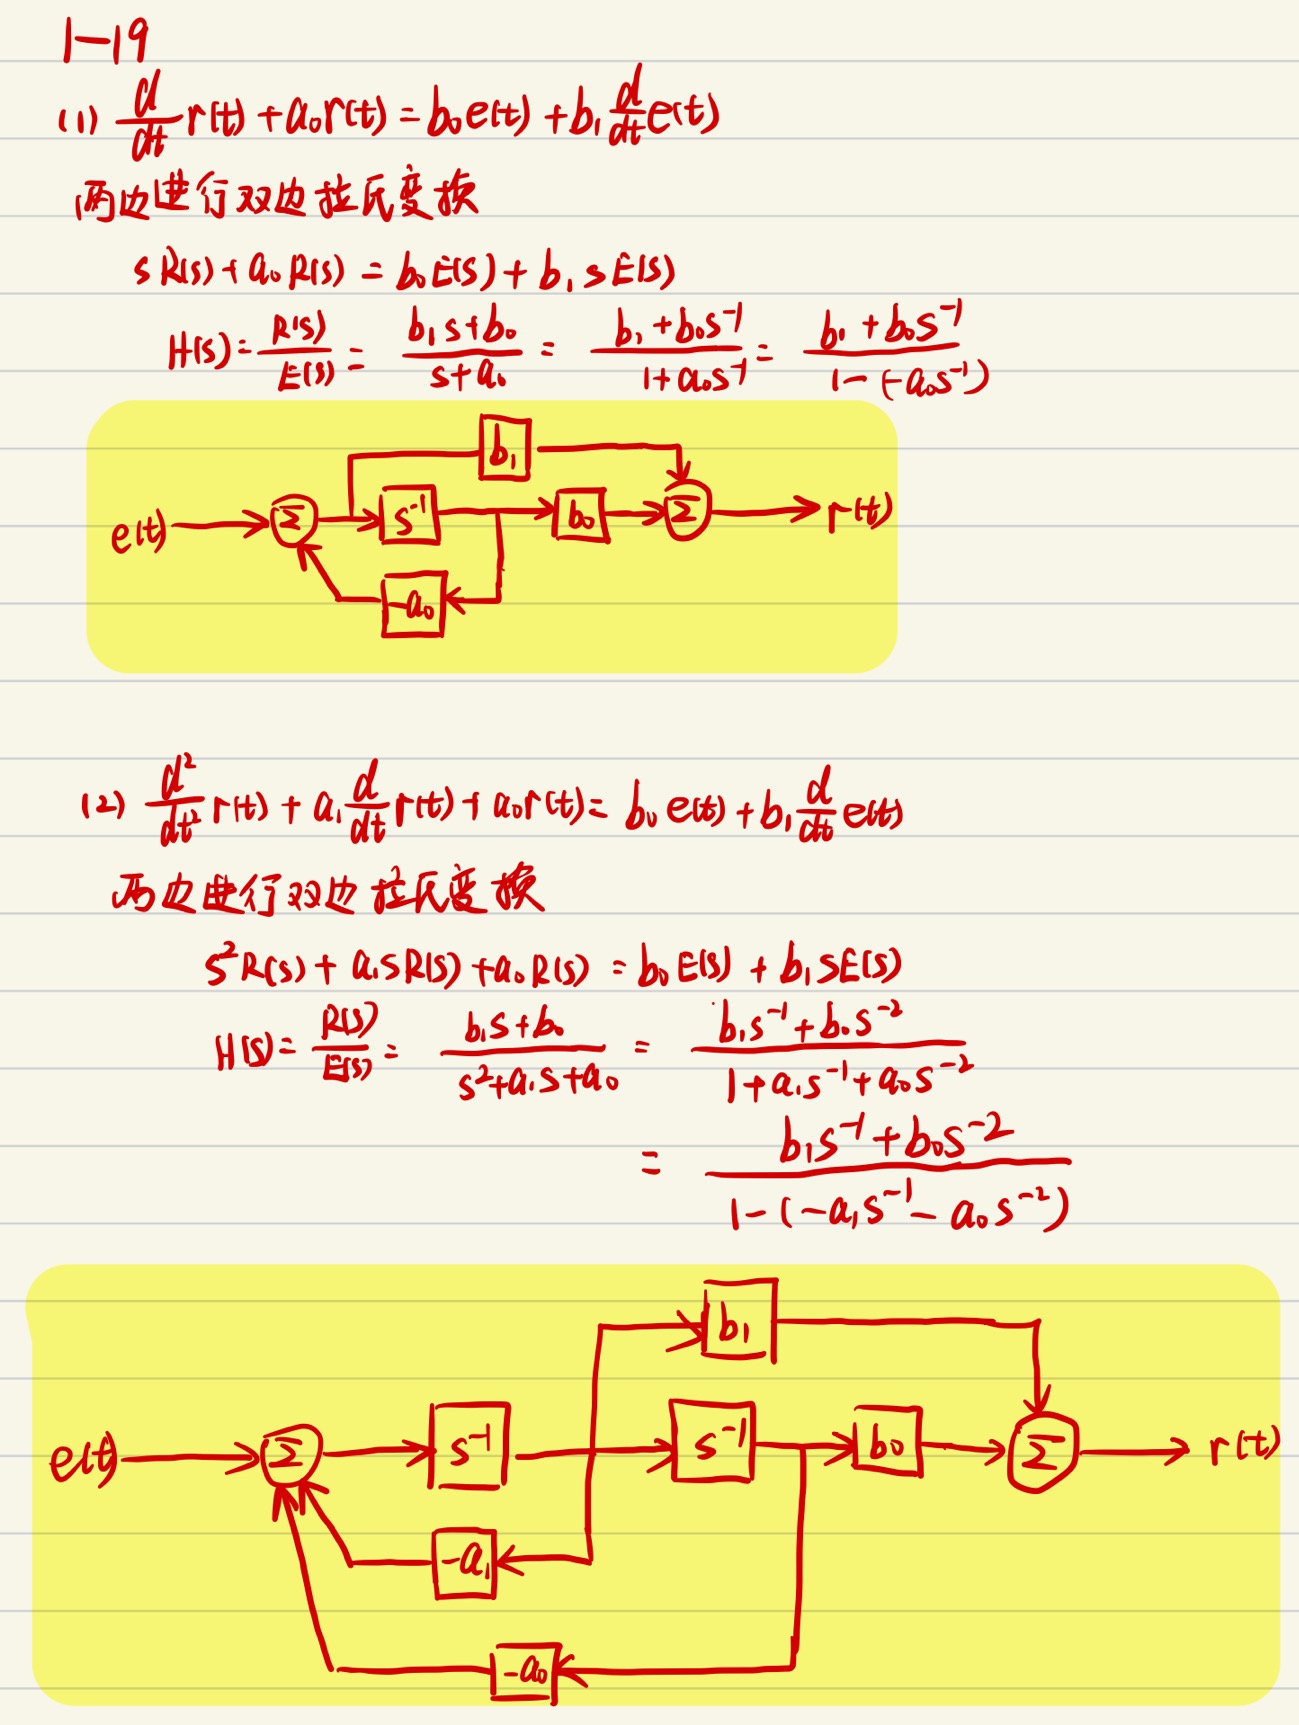 1-19
(1) d/dt r(t) + a₀r(t) = b₀e(t) + b₁ d/dt e(t)
两边进行双边拉氏变换
sR(s) + a₀R(s) = b₀E(s) + b₁sE(s)
H(s) = R(s)/E(s) = (b₁s+b₀)/(s+a₀) = (b₁+b₀s⁻¹)/(1+a₀s⁻¹) = (b₁+b₀s⁻¹)/(1-(-a₀s⁻¹))
b₁
e(t) Σ s⁻¹ b₀ Σ r(t)
-a₀
(2) d²/dt² r(t) + a₁ d/dt r(t) + a₀r(t) = b₀e(t) + b₁ d/dt e(t)
两边进行双边拉氏变换
s²R(s) + a₁sR(s) + a₀R(s) = b₀E(s) + b₁sE(s)
H(s) = R(s)/E(s) = (b₁s+b₀)/(s²+a₁s+a₀) = (b₁s⁻¹+b₀s⁻²)/(1+a₁s⁻¹+a₀s⁻²)
= (b₁s⁻¹+b₀s⁻²)/(1-(-a₁s⁻¹-a₀s⁻²))
b₁
e(t) Σ s⁻¹ s⁻¹ b₀ Σ r(t)
-a₁
-a₀